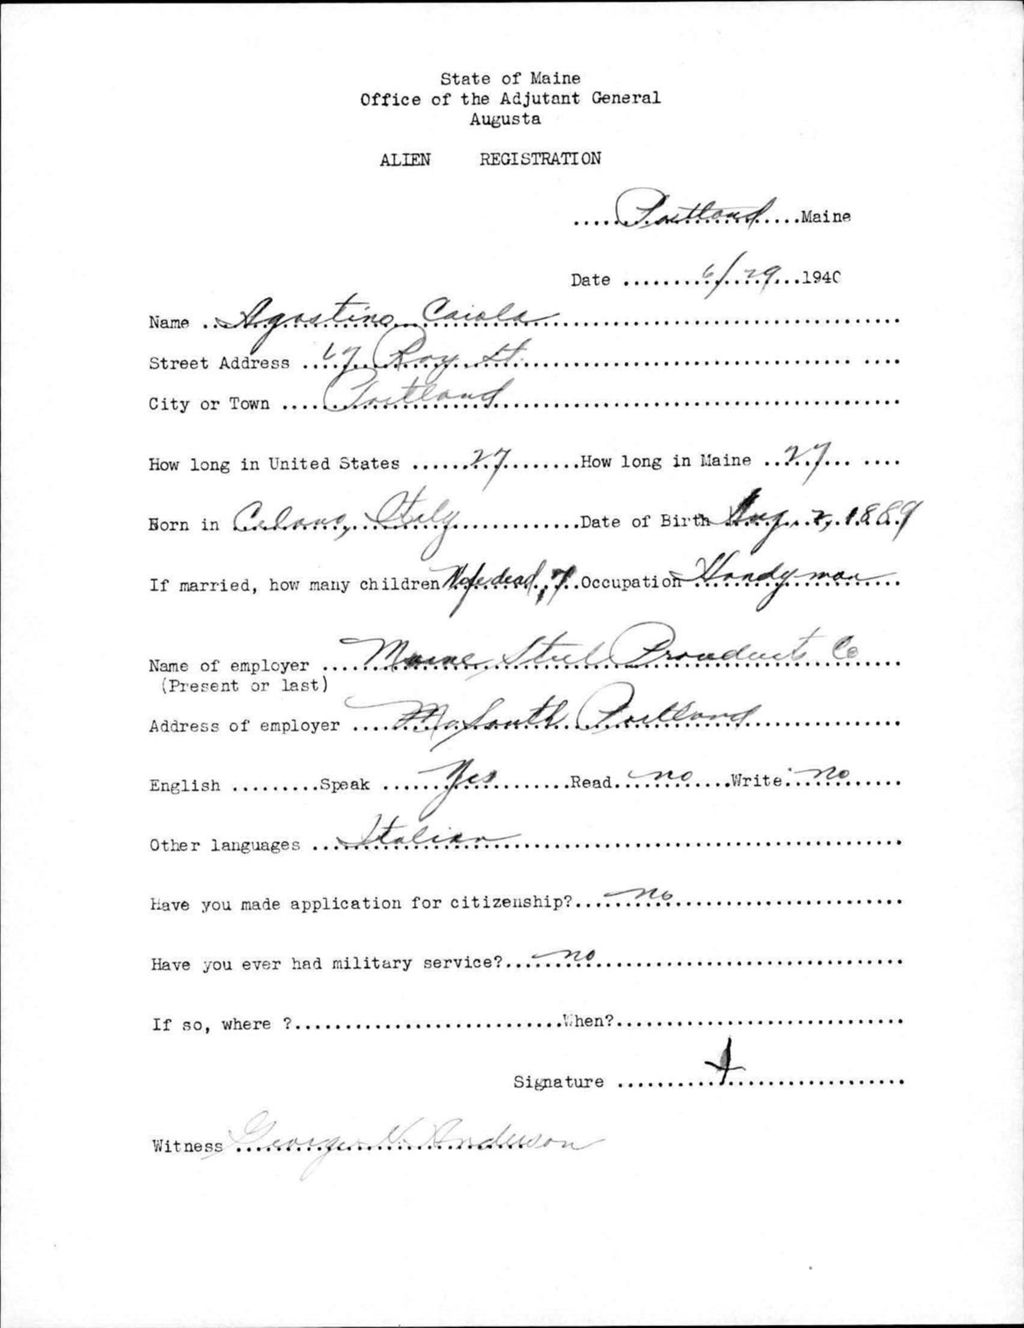 State of Maine
Office of the Adjutant General
Augusta
ALIEN REGISTRATION
.....Portland.....Maine
Date ........6/29...1940
Name ..Agostino Caiola
Street Address ...67 Roy St.
City or Town ....Portland
How long in United States ......27........How long in Maine ..27... ....
Born in Celano, Italy.............Date of Birth Aug. 2, 1889
If married, how many children Wife dead, 7..Occupation Handy man....
Name of employer ....Maine Steel Proudects Co....
(Present or last)
Address of employer ....South Portland
English .........Speak ......Yes..........Read...no.....Write...no......
Other languages ..Italian
Have you made application for citizenship?...no
Have you ever had military service?...no
If so, where ?...........................When?.............................
Signature ..........................
Witness George N. Anderson